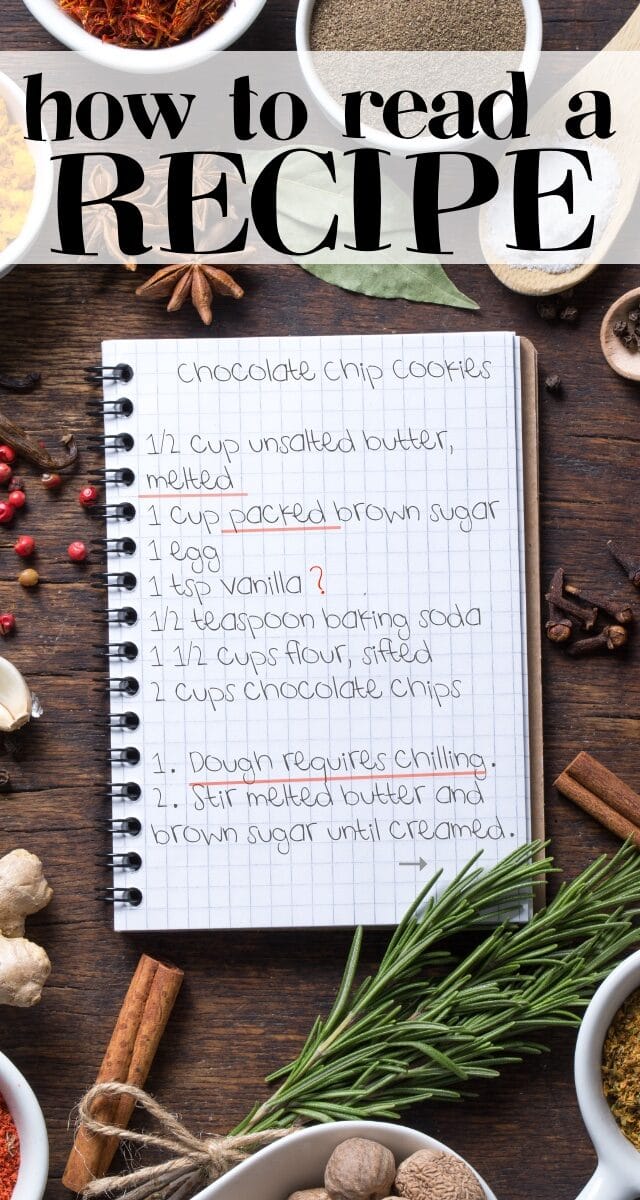 how to read a
RECIPE
Chocolate Chip Cookies
1/2 cup unsalted butter,
melted
1 cup packed brown sugar
1 egg
1 tsp vanilla ?
1/2 teaspoon baking soda
1 1/2 cups flour, sifted
2 cups chocolate chips
1. Dough requires chilling.
2. Stir melted butter and
brown sugar until creamed.
→